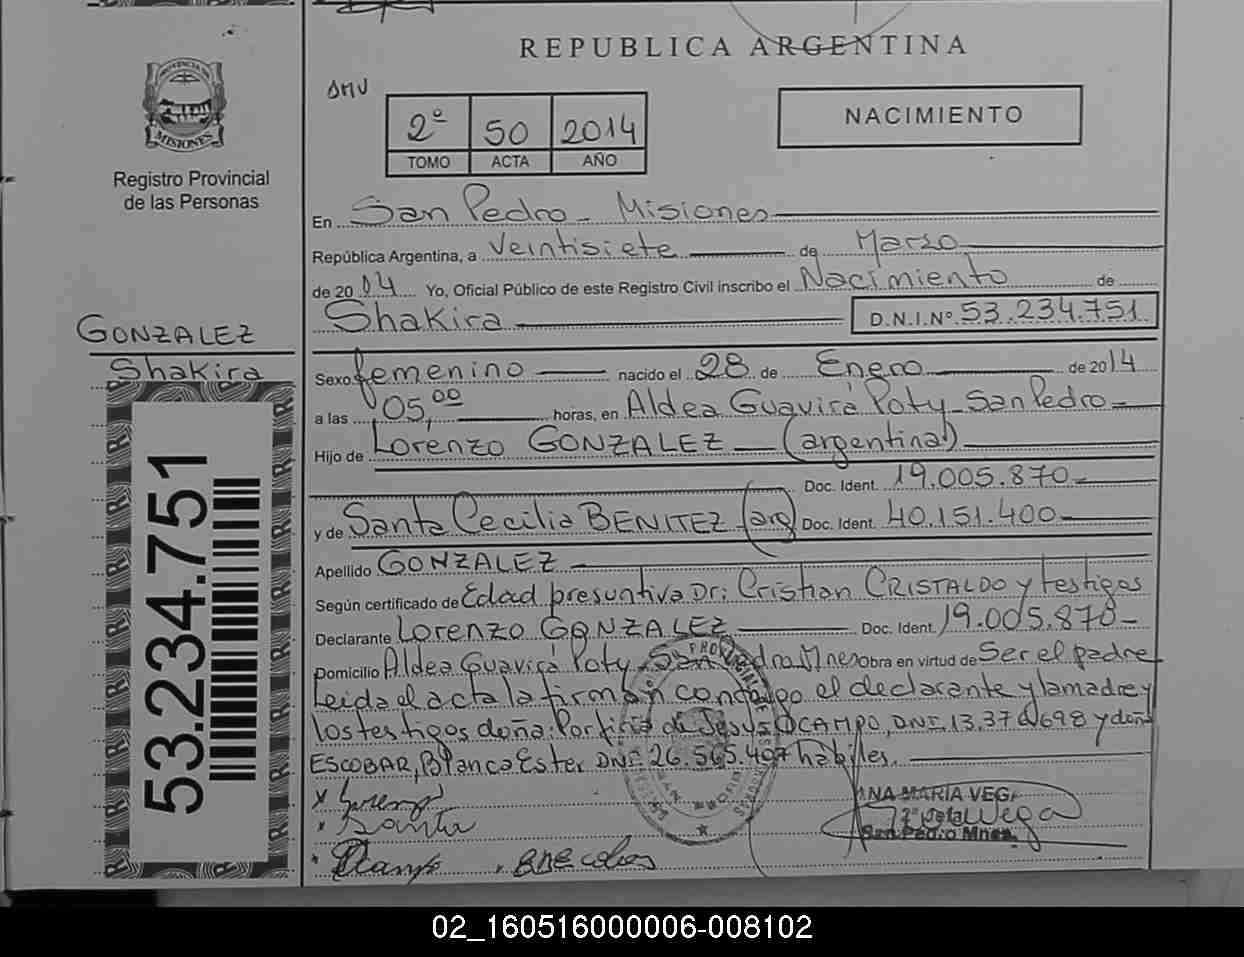 REPUBLICA ARGENTINA
PROVINCIA DE
MISIONES
Registro Provincial
de las Personas
2º 50 2014
TOMO ACTA AÑO
NACIMIENTO
En San Pedro - Misiones
República Argentina, a Veintisiete de Marzo
de 2014 Yo, Oficial Público de este Registro Civil inscribo el Nacimiento de
Shakira D.N.I.Nº 53.234.751
GONZALEZ
Shakira
53.234.751
Sexo femenino nacido el 28 de Enero de 2014
a las 05,00 horas, en Aldea Guavirá Poty - San Pedro -
Hijo de Lorenzo GONZALEZ (argentina)
Doc. Ident. 19.005.870
y de Santa Cecilia BENITEZ (arg) Doc. Ident. 40.151.400
Apellido GONZALEZ
Según certificado de Edad presuntiva Dr: Cristian CRISTALDO y testigos
Declarante Lorenzo GONZALEZ Doc. Ident. 19.005.870
Domicilio Aldea Guavirá Poty - San Pedro Mnes Obra en virtud de Ser el padre
Leida el acta la firman conmigo el declarante y la madre y
los testigos doña: Porfiria de Jesús OCAMPO, DNI. 13.37 698 y doña
ESCOBAR, Blanca Ester DNI. 26.565.497 habiles.
Lorenzo
Santa
ANA MARIA VEGA
San Pedro Mnes.
02_160516000006-008102